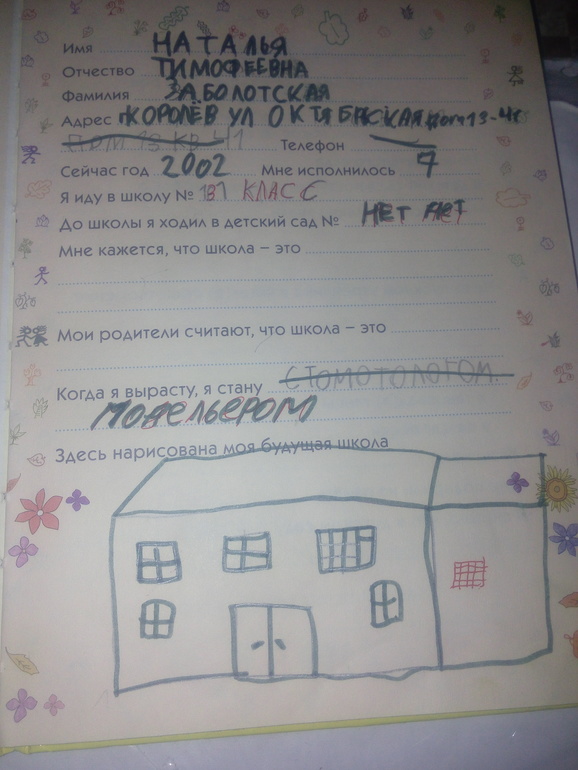 Имя НАТАЛЬЯ
Отчество ТИМОФЕЕВНА
Фамилия ЗАБОЛОТСКАЯ
Адрес г КОРОЛЁВ УЛ ОКТЯБРСКАЯ дом 13-41
ДОМ 13 КВ 41 Телефон
Сейчас год 2002 Мне исполнилось 7
Я иду в школу № 1 КЛАСС
До школы я ходил в детский сад № НЕТ НЕТ
Мне кажется, что школа – это
Мои родители считают, что школа – это
Когда я вырасту, я стану СТОМОТОЛОГОМ.
МОДЕЛЬЕРОМ
Здесь нарисована моя будущая школа